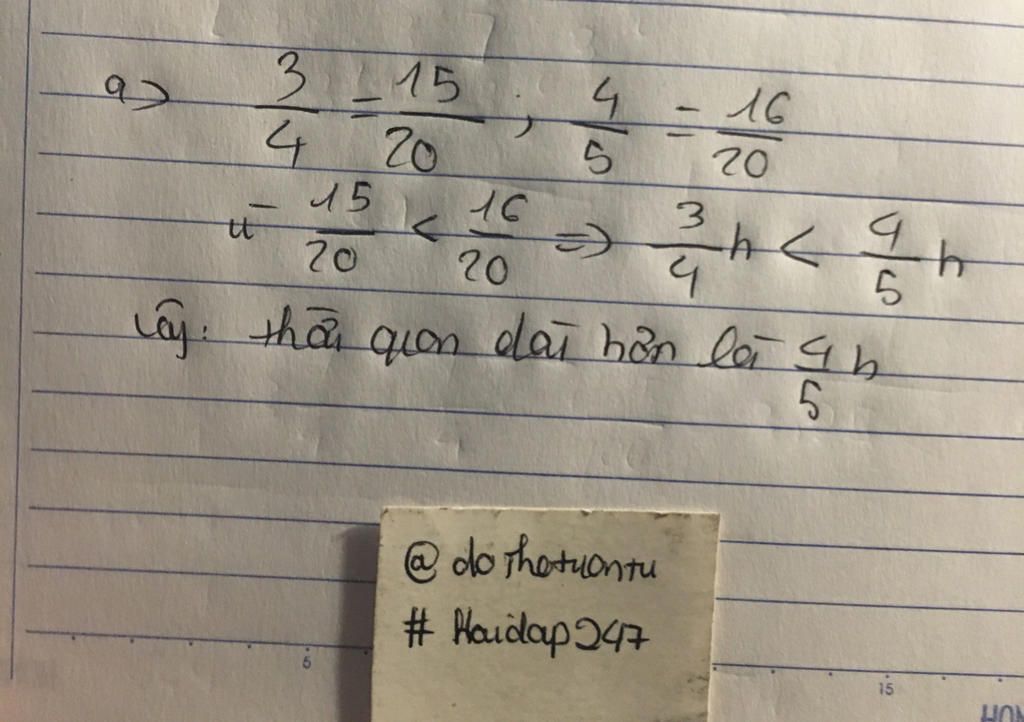 a) 3/4 = 15/20 ; 4/5 = 16/20
15/20 < 16/20 => 3/4 h < 4/5 h
Vậy: thời quan dài hơn là 4/5 h
@ dothotuontu
# Hoidap247
5
15
HON